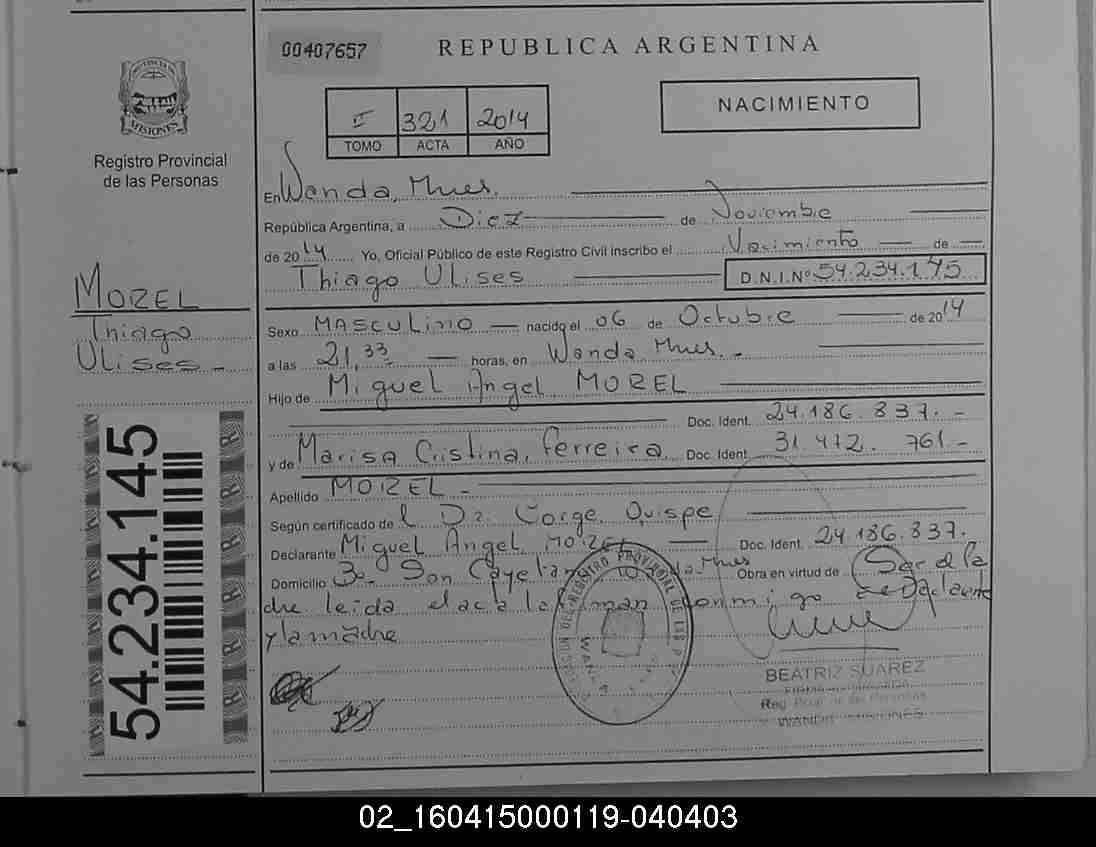 00407657
REPUBLICA ARGENTINA
PROVINCIA DE
MISIONES
Registro Provincial
de las Personas
NACIMIENTO
I 321 2014
TOMO ACTA AÑO
En Wanda, Mnes.
República Argentina, a Diez de Noviembre
de 2014 Yo, Oficial Público de este Registro Civil inscribo el Nacimiento de
Thiago Ulises D.N.I.Nº 54.234.145
MOREL
Thiago
Ulises
Sexo MASCULINO nacido el 06 de Octubre de 2014
a las 21,33 horas, en Wanda Mnes.
Hijo de Miguel Angel MOREL
Doc. Ident. 24.186.837.-
y de Marisa Cristina, Ferreira Doc. Ident. 31.412.761.-
Apellido MOREL.-
Según certificado de l Dr. Jorge Quispe
Declarante Miguel Angel MOREL Doc. Ident. 24.186.837.
Domicilio Bº San Cayetano Wanda Mnes Obra en virtud de Ser el Pa
dre leida el acta la firman conmigo el Declarante
y la madre
54.234.145
REGISTRO PROVINCIAL DE LAS
WANDA
BEATRIZ SUAREZ
Reg. Prov. de las Personas
WANDA MISIONES
02_160415000119-040403